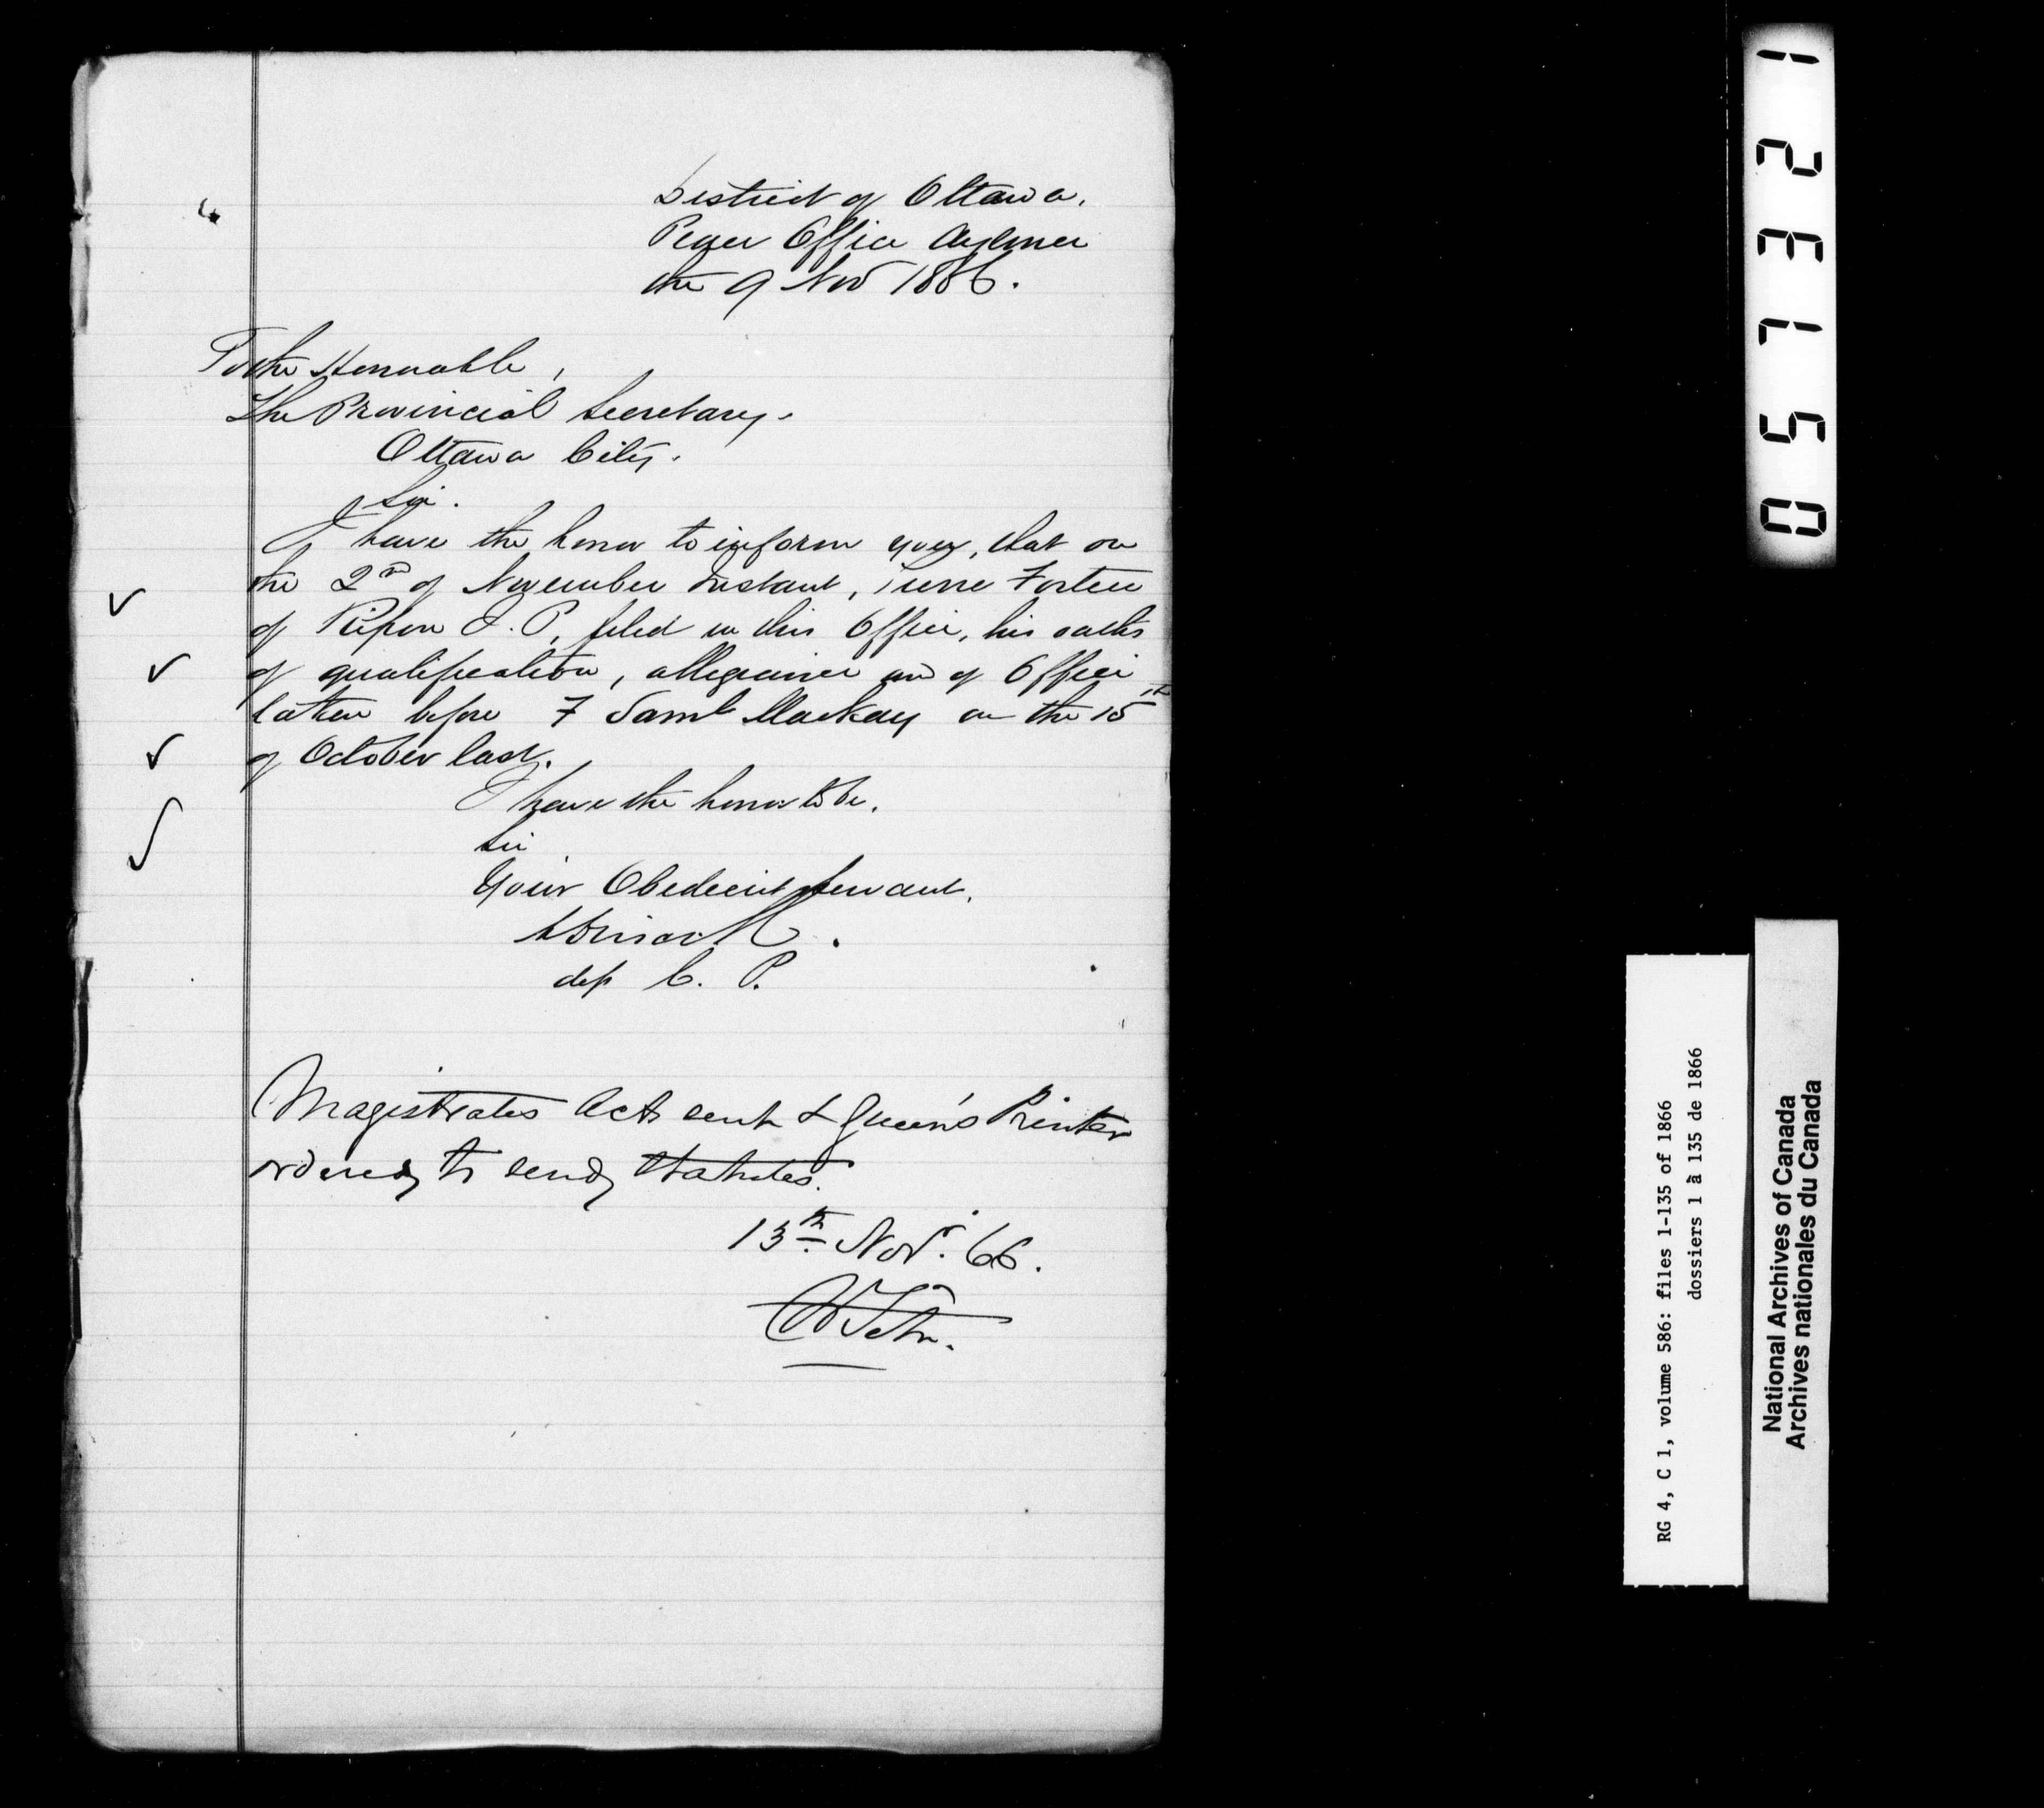 District of Ottawa.
Peace Office Aylmer
the 9 Nov 1866.
To the Honorable,
The Provincial Secretary.
Ottawa City.
Sir.
I have the honor to inform you, that on
the 2nd of November Instant, Pierre Fortier
of Ripon J. P. filed in this Office, his oaths
of qualification, allegiance and of Office
taken before F Saml Mackay on the 15th
of October last.
I have the honor to be.
Sir
Your Obedient Servant.
dep C. P.
Magistrates Acts sent & Queen's Printer
ordered to send Statutes.
13th Novr. 66.
051321
RG 4, C 1, volume 586: files 1-135 of 1866
dossiers 1 à 135 de 1866
National Archives of Canada
Archives nationales du Canada